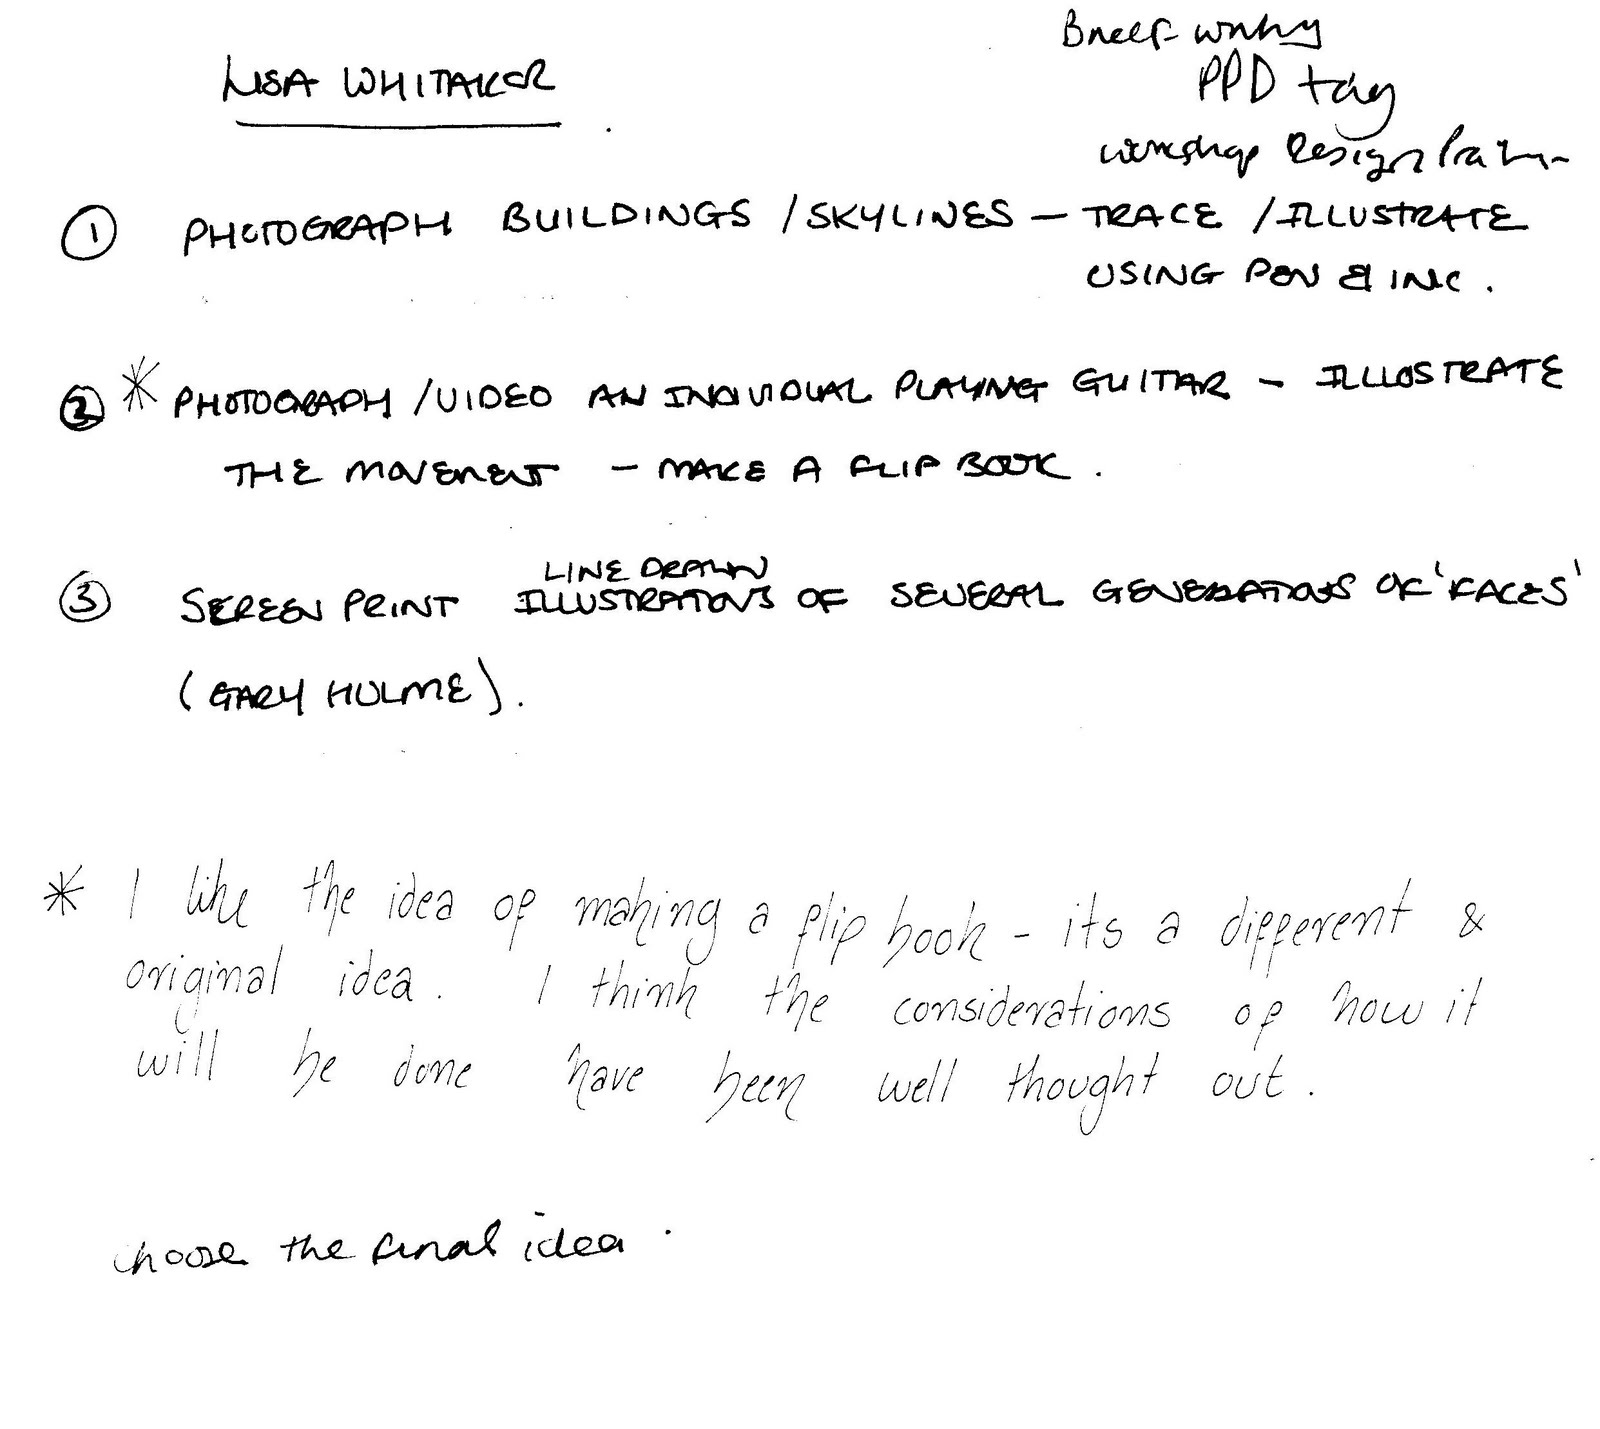 LISA WHITAKER
Brief writing
PPD tag
workshop Design
① PHOTOGRAPH BUILDINGS / SKYLINES — TRACE / ILLUSTRATE
USING PEN & INC.
② * PHOTOGRAPH / VIDEO AN INDIVIDUAL PLAYING GUITAR – ILLUSTRATE
THE MOVEMENT – MAKE A FLIP BOOK.
LINE DRAWN
③ SCREEN PRINT ILLUSTRATIONS OF SEVERAL GENERATIONS OF 'FACES'
(GARY HULME).
* I like the idea of making a flip book – its a different &
original idea. I think the considerations of how it
will be done have been well thought out.
choose the final idea.